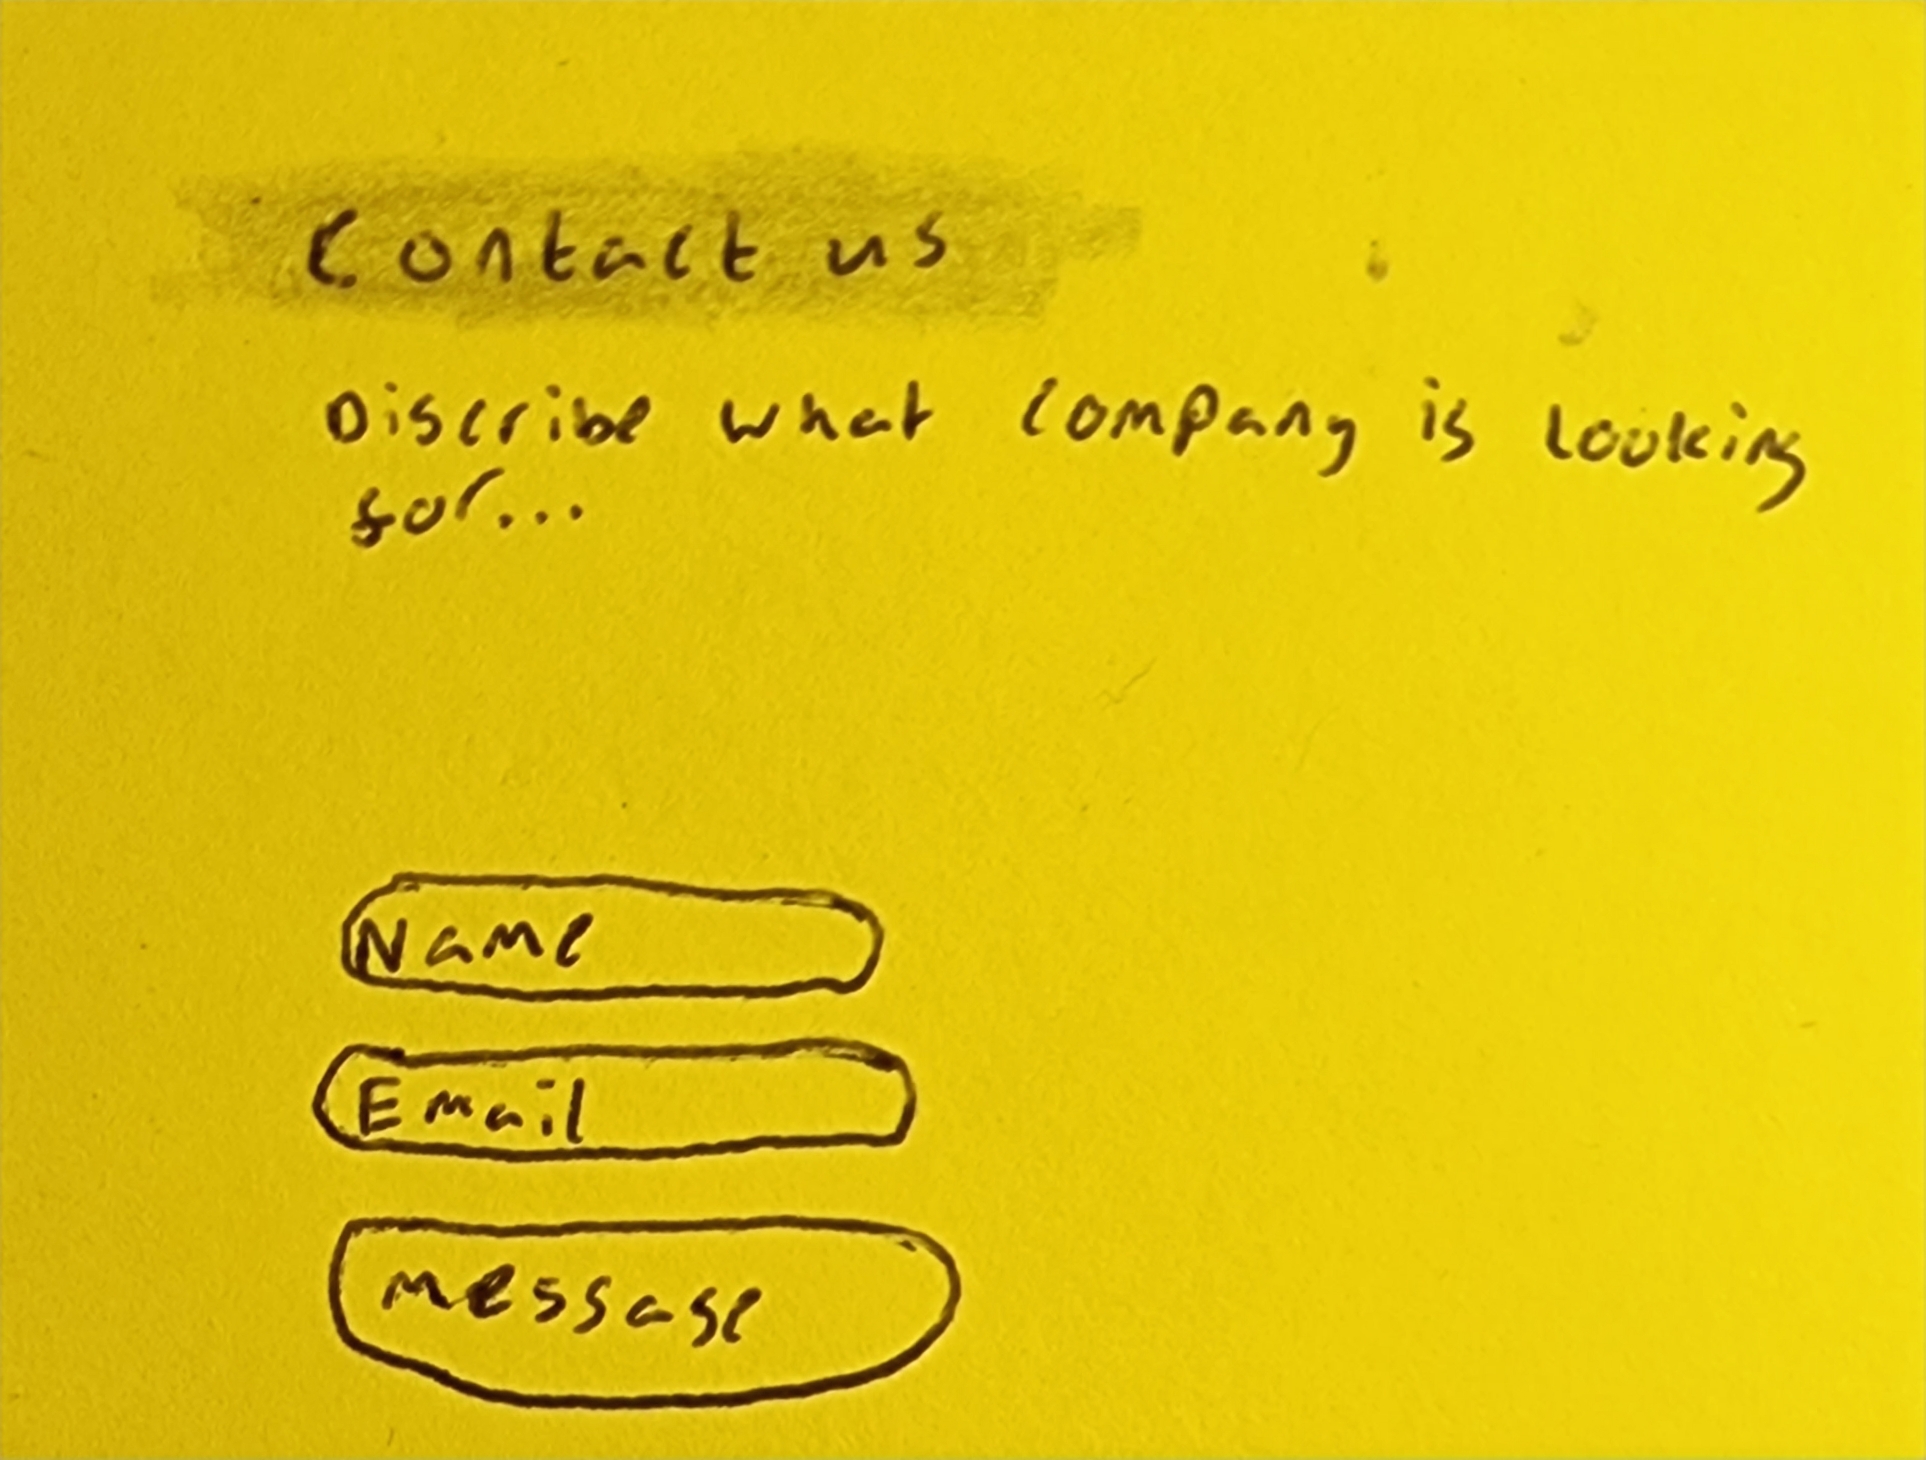 Contact us
Discribe what company is looking
for...
Name
Email
message